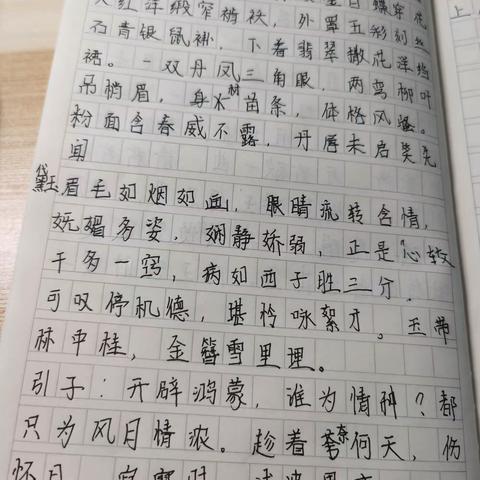 大红洋缎窄裉袄，外罩五彩刻丝
石青银鼠褂，下着翡翠撒花洋绉
裙。一双丹凤三角眼，两弯柳叶
吊梢眉，身材苗条，体格风骚。
粉面含春威不露，丹唇未启笑先
闻
黛玉眉毛如烟如画，眼睛流转含情，
妩媚多姿，娴静娇弱，正是心较
干多一窍，病如西子胜三分.
可叹停机德，堪怜咏絮才。玉带
林中挂，金簪雪里埋。
引子：开辟鸿蒙，谁为情种？都
只为风月情浓。趁着奈何天，伤
怀日，寂寥时，